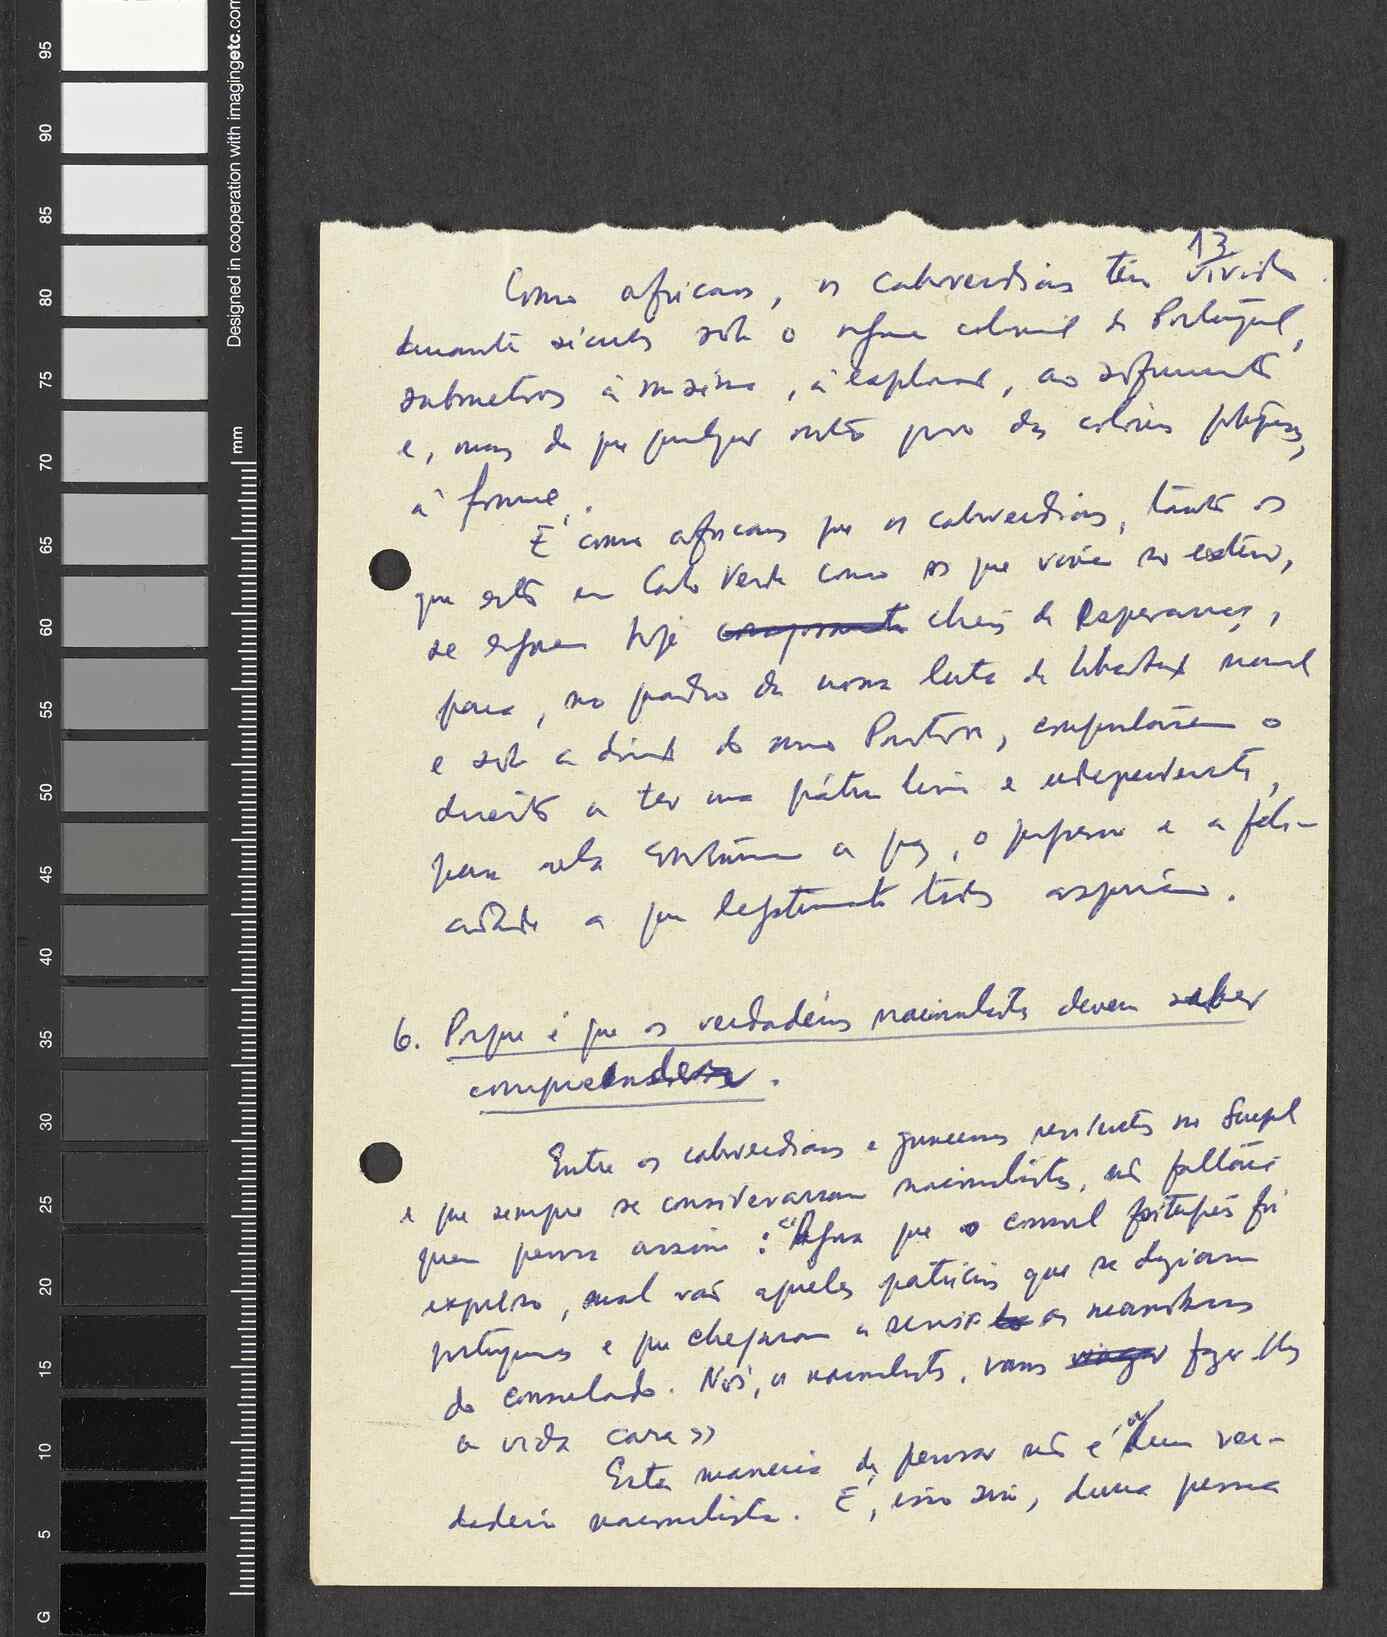 13
Como africanos, os caboverdianos têm vivido
durante séculos sob o regime colonial de Portugal,
submetidos à miséria, à exploração, ao sofrimento
e, mais do que qualquer outro povo das colónias portuguesas,
à fome.
É como africanos que os caboverdianos, tanto os
que estão em Cabo Verde como os que vivem no exterior,
se erguem hoje cheios de esperança,
para, no quadro da nossa luta de libertação nacional
e sob a direcção do nosso Partido, conquistarem o
direito a ter uma pátria livre e independente,
para nela construírem a paz, o progresso e a feli-
cidade a que legitimamente todos aspiram.
6. Porque é que os verdadeiros nacionalistas devem saber
compreender.
Entre os caboverdianos e guineenses residentes no Senegal
e que sempre se consideraram nacionalistas, não faltará
quem pensa assim: "Agora que o consul português foi
expulso, mal vão aqueles patrícios que se diziam
portugueses e que chegaram a servir os
do consulado. Nós, os nacionalistas, vamos fazer-lhes
a vida cara»
Esta maneira de pensar não é a dum ver-
dadeiro nacionalista. É, isso sim, duma pessoa
95
90
85
80
75
70
65
60
55
50
45
40
35
30
25
20
15
10
5
G
mm
Designed in cooperation with imagingetc.com